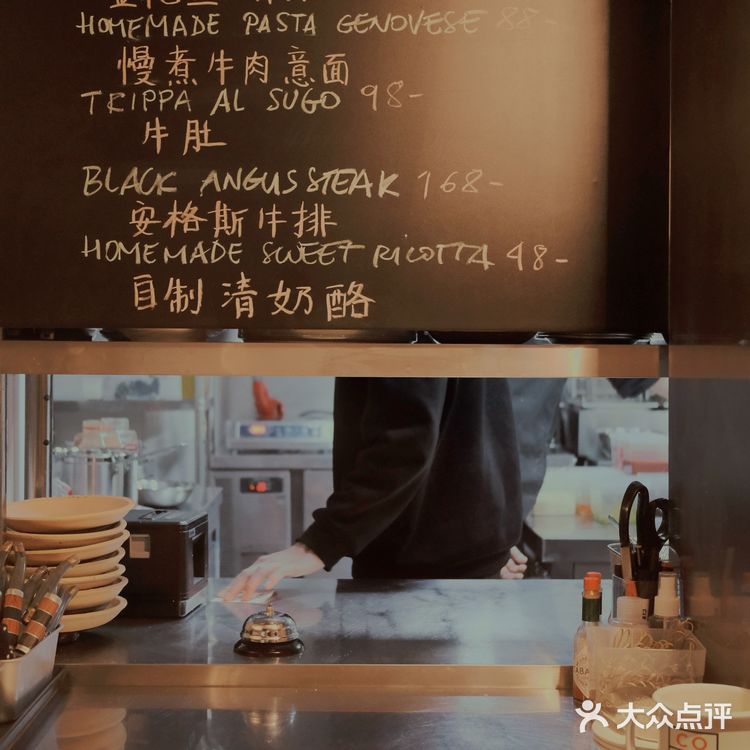 HOMEMADE PASTA GENOVESE 88-
慢煮牛肉意面
TRIPPA AL SUGO 98-
牛肚
BLACK ANGUS STEAK 168-
安格斯牛排
HOMEMADE SWEET RICOTTA 48-
自制清奶酪
CO
大众点评